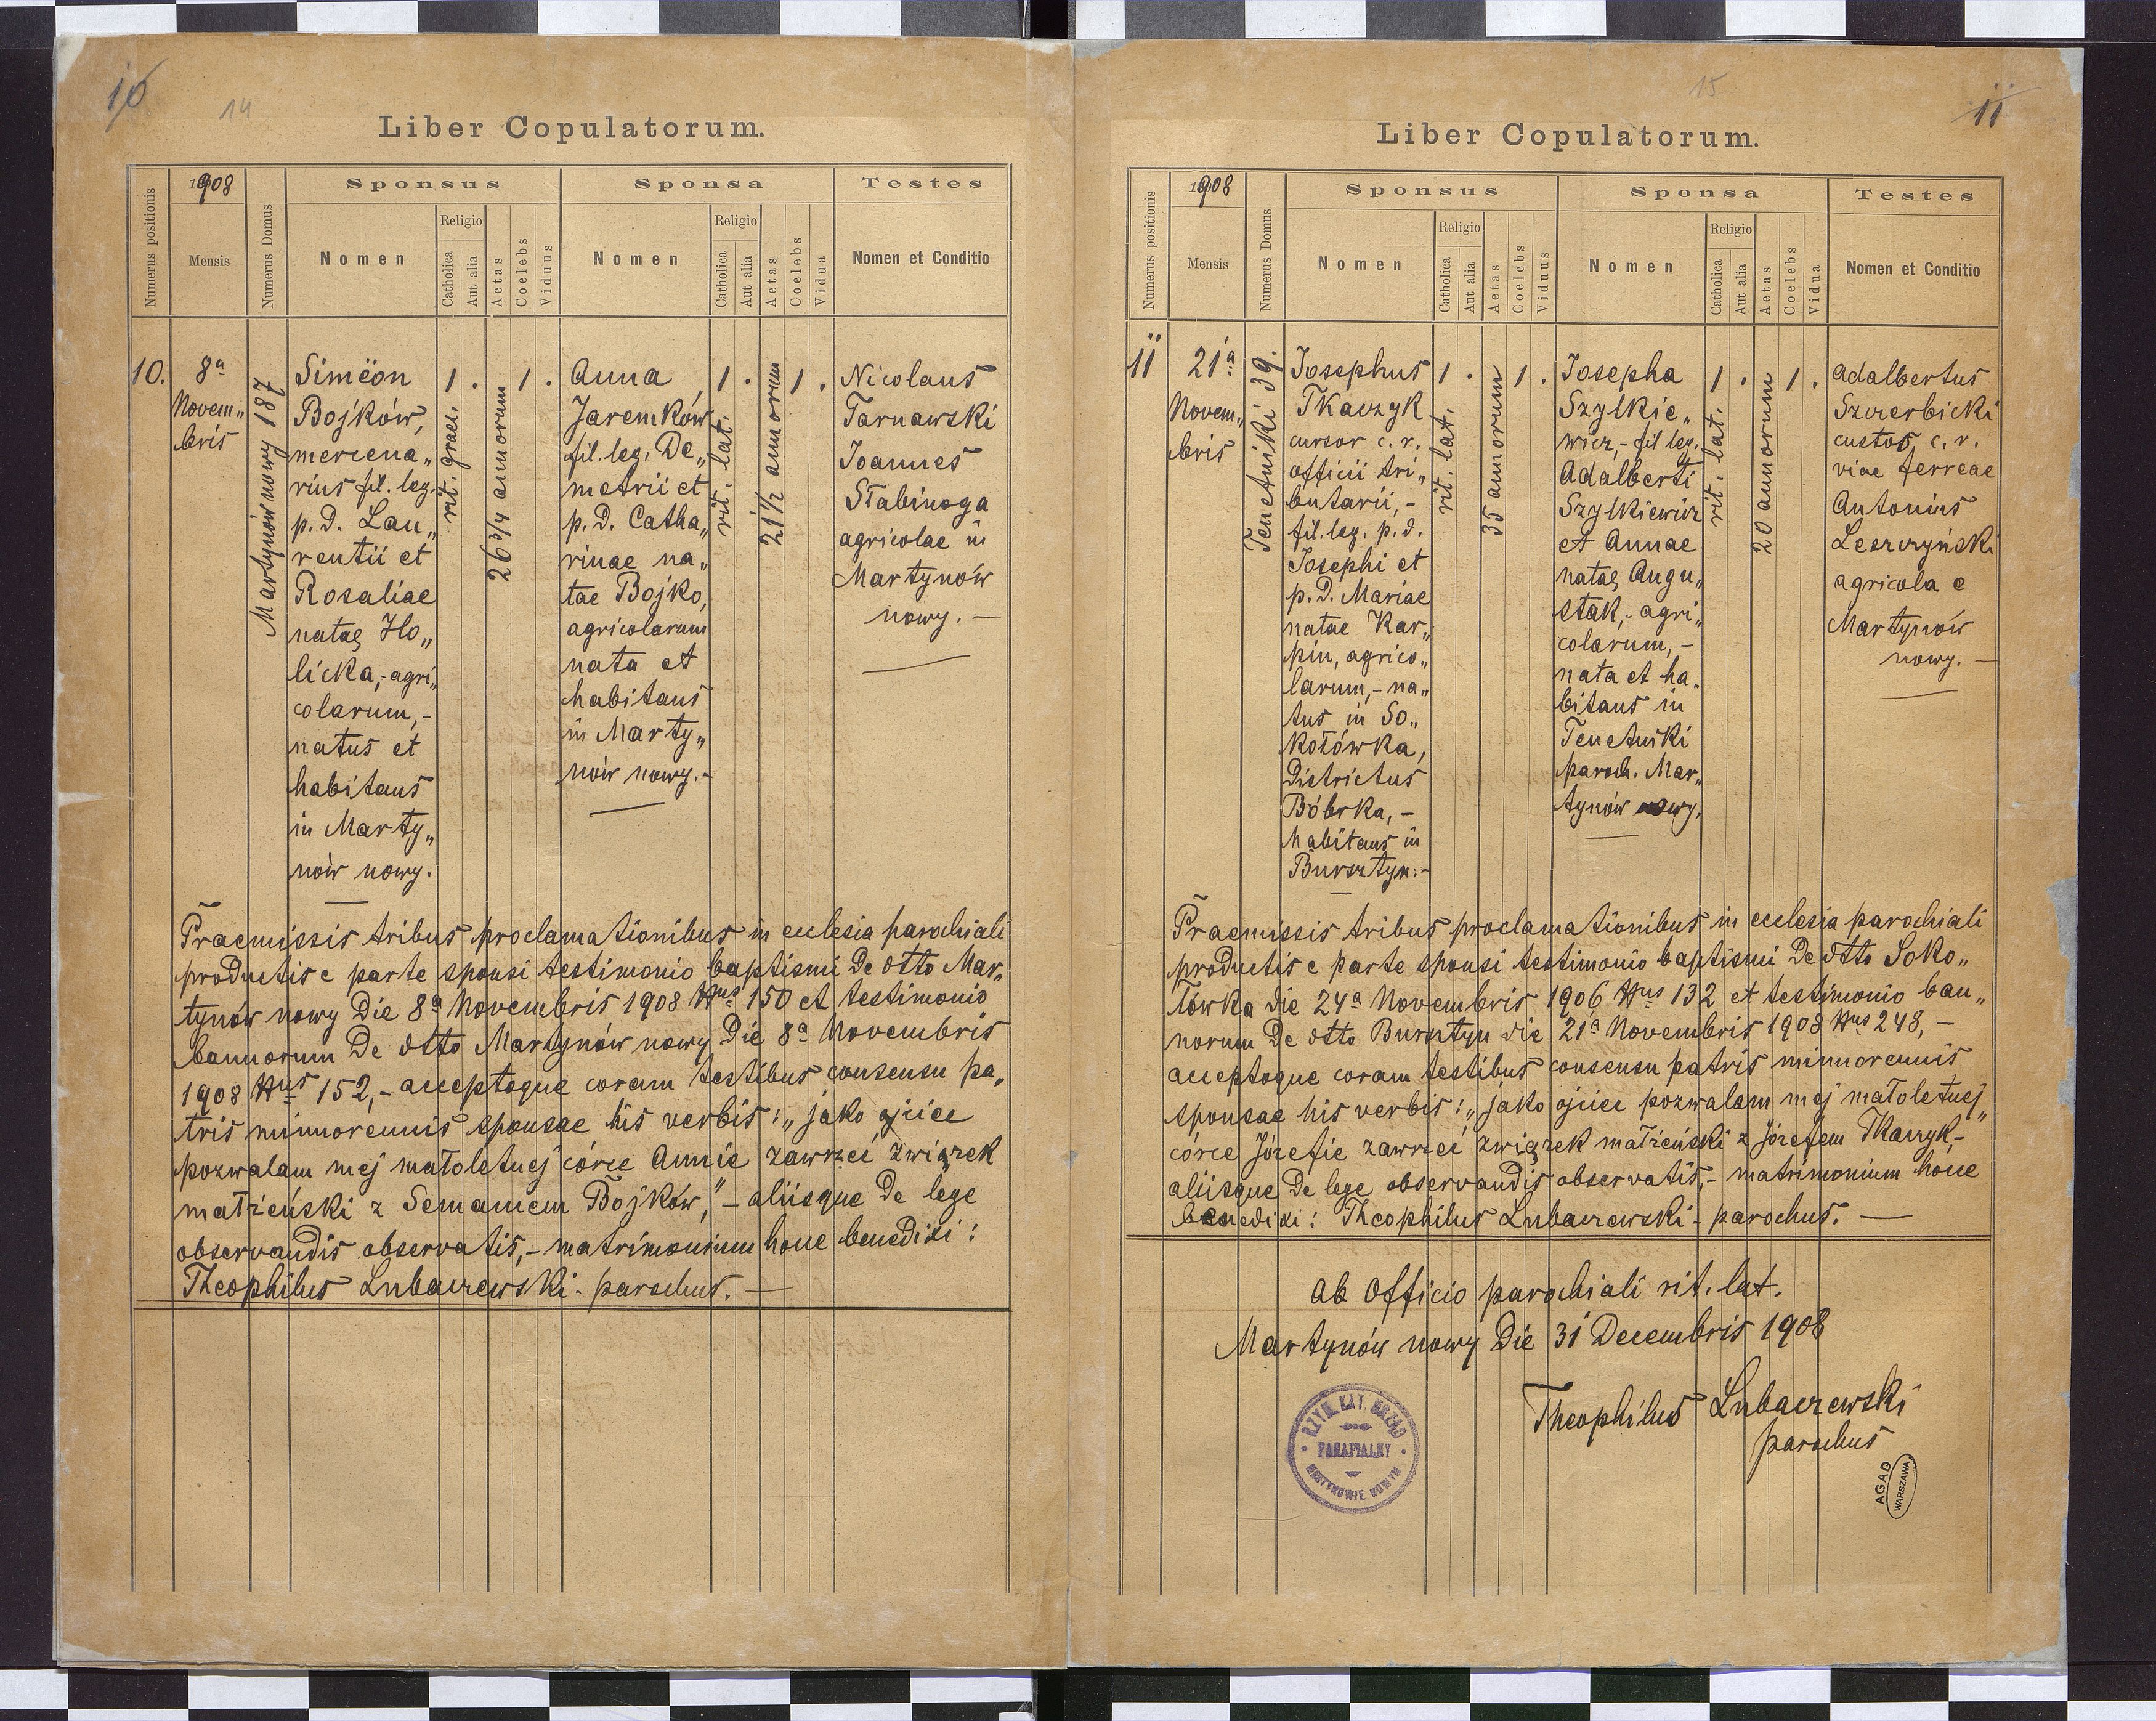 10
14
Liber Copulatorum.
Numerus positionis
1908
Mensis
Numerus Domus
Sponsus
Nomen
Religio
Catholica
Aut alia
Aetas
Coelebs
Viduus
Sponsa
Nomen
Religio
Catholica
Aut alia
Aetas
Coelebs
Vidua
Testes
Nomen et Conditio
10.
8a
Novem„
bris
Martynów nowy 187
Simëon
Bojków,
mercena„
rius fil. leg.
p. d. Lau„
rentii et
Rosaliae
natae Ho„
licka,- agri„
colarum,-
natus et
habitans
in Marty„
nów nowy.
1 .
rit. graec.
26 3/4 annorum
1 .
Anna
Jaremków
fil. leg. De„
metrii et
p. d. Catha„
rinae na„
tae Bojko,
agricolarum
nata et
habitans
in Marty„
nów nowy.-
1 .
rit. lat.
21 1/2 annorum
1 .
Nicolaus
Tarnawski
Joannes
Słabinoga
agricolae in
Martynów
nowy. -
Praemissis tribus proclamationibus in ecclesia parochiali
productis e parte sponsi testimonio baptismi de dtto Mar„
tynów nowy die 8a Novembris 1908 Nus 150 et testimonio
bannorum de dtto Martynów nowy die 8a Novembris
1908 Nus 152,- acceptoque coram testibus consensu pa„
tris minorennis sponsae his verbis: „jako ojciec
pozwalam mej małoletniej córce Annie zawrzeć związek
małżeński z Semaniem Bojków," - aliisque de lege
observandis observatis,- matrimonium hocce benedixi:
Theophilus Lubaczewski - parochus. -
15
11
Liber Copulatorum.
Numerus positionis
1908
Mensis
Numerus Domus
Sponsus
Nomen
Religio
Catholica
Aut alia
Aetas
Coelebs
Viduus
Sponsa
Nomen
Religio
Catholica
Aut alia
Aetas
Coelebs
Vidua
Testes
Nomen et Conditio
11
21a
Novem„
bris
Tenetniki 39.
Josephus
Tkaczyk
cursor c. r.
officii tri„
butarii,-
fil. leg. p. d.
Josephi et
p. d. Mariae
natae Kar„
pin, agrico„
larum,- na„
tus in So„
kołówka,
Districtus
Bóbrka, -
habitans in
Bursztyn.-
1 .
rit. lat.
35 annorum
1 .
Josepha
Szylkie„
wicz,- fil leg.
Adalberti
Szylkiewicz
et Annae
natae Augu„
stak,- agri„
colarum, -
nata et ha„
bitans in
Tenetniki
paroch. Mar„
tynów nowy.
1 .
rit. lat.
20 annorum
1 .
Adalbertus
Szczerbicki
custos c. r.
viae ferreae
Antonius
Leszczyński
agricola e
Martynów
nowy. -
Praemissis tribus proclamationibus in ecclesia parochiali
productis e parte sponsi testimonio baptismi de dtto Soko„
łówka die 24a Novembris 1906 Nus 132 et testimonio ban„
norum de dtto Bursztyn die 21a Novembris 1908 Nus 248, -
acceptoque coram testibus consensu patris minorennis
sponsae his verbis: „jako ojciec pozwalam mej małoletniej
córce Józefie zawrzeć związek małżeński z Józefem Tkaczyk"-
aliisque de lege observandis observatis,- matrimonium hocce
benedixi: Theophilus Lubaczewski - parochus. -
Ab Officio parochiali rit. lat.
Martynów nowy Die 31 Decembris 1908
Theophilus Lubaczewski
parochus
RZYM. KAT. URZĄD
PARAFIALNY
MARTYNOWIE NOWYM
AGAD
WARSZAWA